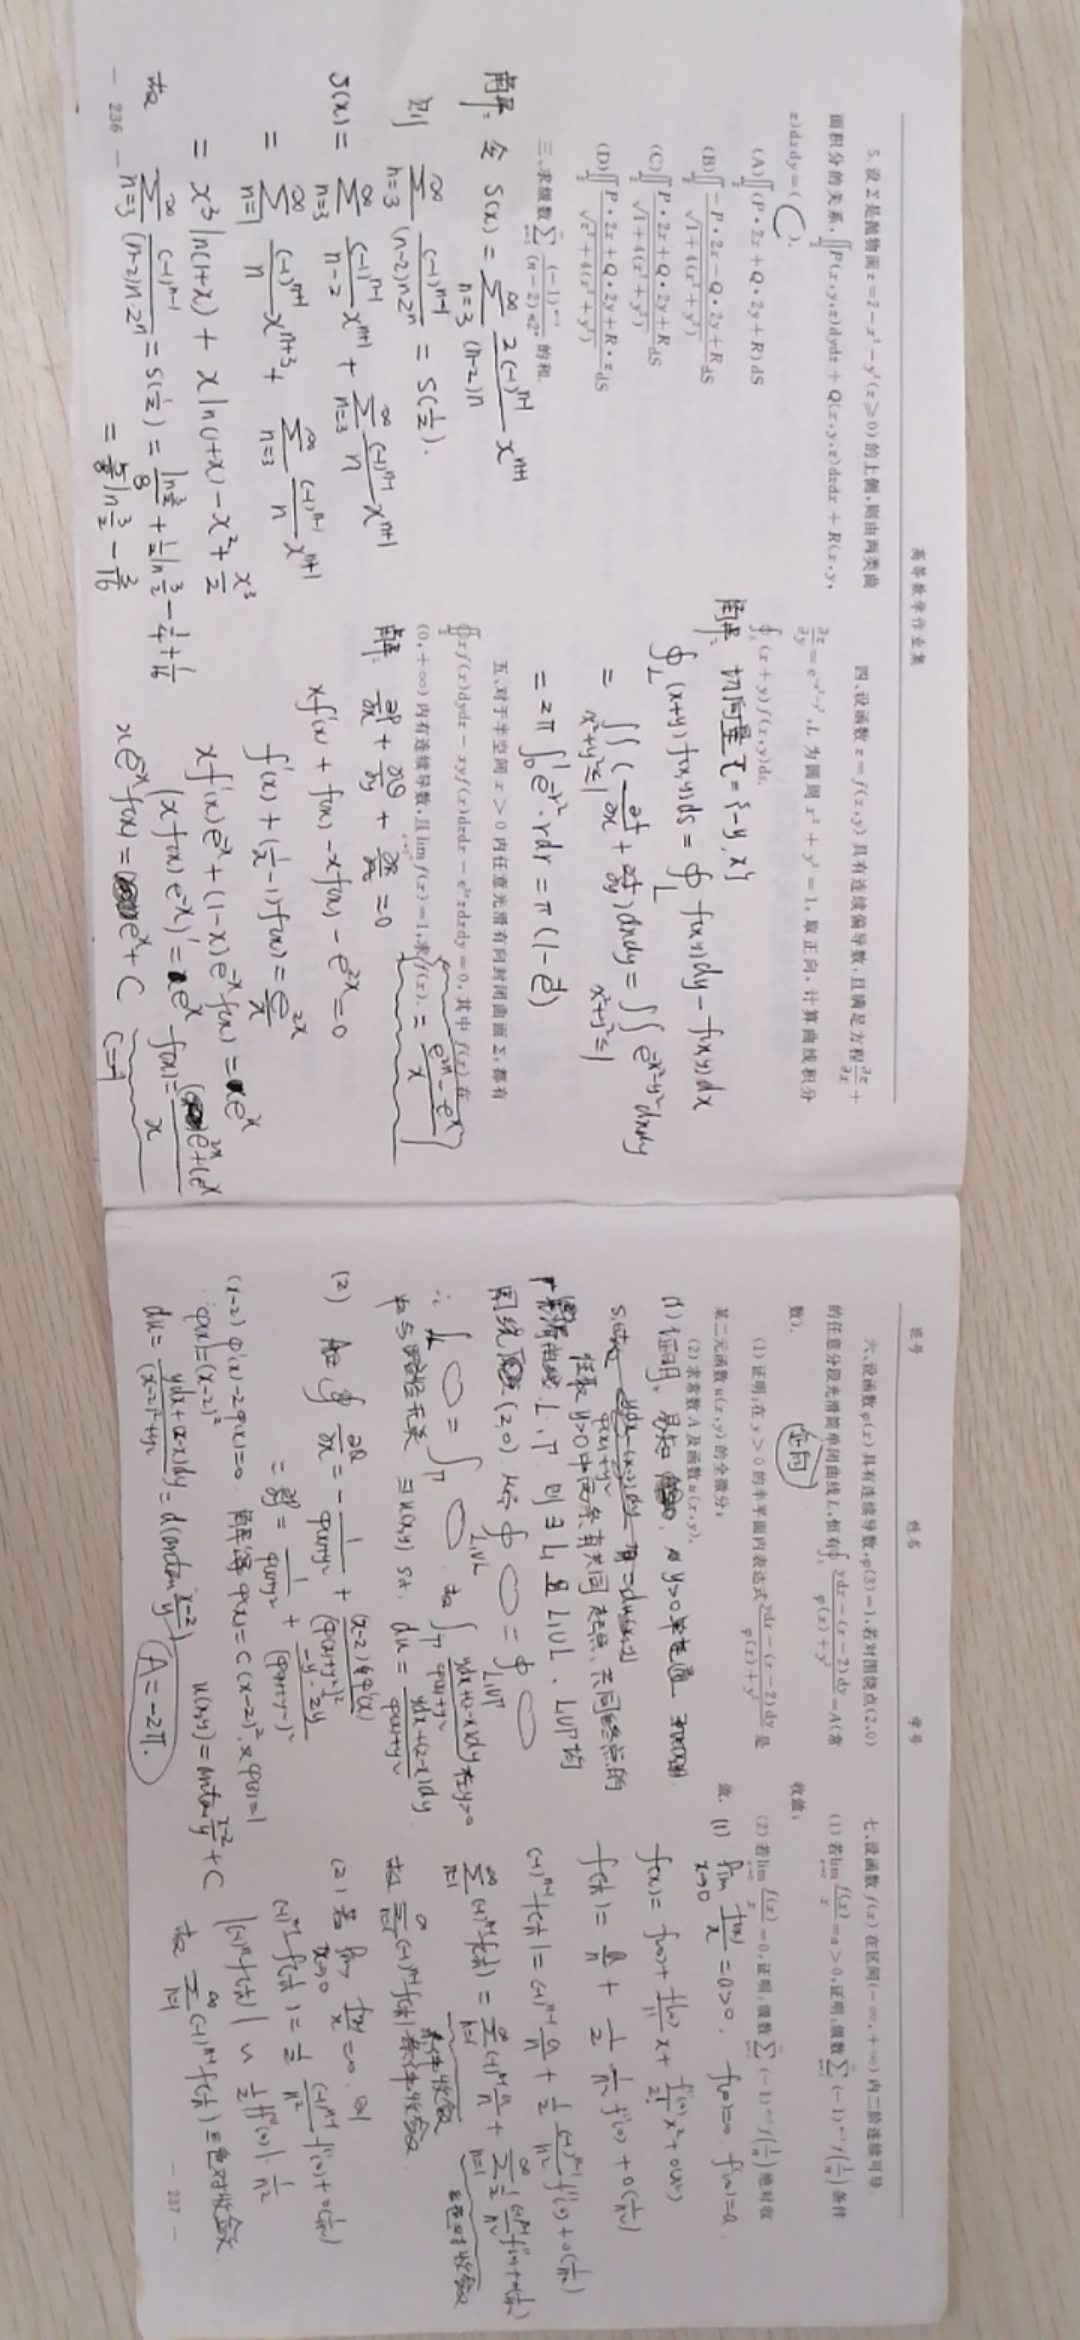 高等数学作业集
5. 设Σ是抛物面z=2-x²-y²(z≥0)的上侧,则由两类曲
面积分的关系,∬P(x,y,z)dydz+Q(x,y,z)dzdx+R(x,y,
z)dxdy=( C ).
(A)∬(P·2x+Q·2y+R)dS
(B)∬(-P·2x-Q·2y+R)/√(1+4(x²+y²)) dS
(C)∬(P·2x+Q·2y+R)/√(1+4(x²+y²)) dS
(D)∬(P·2x+Q·2y+R·z)/√(z²+4(x²+y²)) dS
三、求级数∑(-1)^(n-1)/((n-2)n2ⁿ)的和.
解: 令 S(x)=∑_(n=3)^∞ 2(-1)^(n-1)/((n-2)n) x^(n+1)
则 ∑_(n=3)^∞ (-1)^(n-1)/((n-2)n2ⁿ) = S(1/2).
S(x)= ∑_(n=3)^∞ (-1)^(n-1)/(n-2) x^(n+1) + ∑_(n=3)^∞ (-1)^(n-1)/n x^(n+1)
= ∑_(n=1)^∞ (-1)^(n+1)/n x^(n+3) + ∑_(n=3)^∞ (-1)^(n-1)/n x^(n+1)
= x³ln(1+x) + xln(1+x) - x² + x³/2
故 ∑_(n=3)^∞ (-1)^(n-1)/((n-2)n·2ⁿ) = S(1/2) = ln(3/2)/8 + 1/2 ln 3/2 - 1/4 + 1/16
= 5/8 ln 3/2 - 3/16
— 236 —
四、设函数z=f(x,y)具有连续偏导数,且满足方程∂z/∂x+
∂z/∂y=e^(-x²-y²),L为圆周x²+y²=1,取正向,计算曲线积分
∮_L(x+y)f(x,y)ds.
解: 切向量τ={-y,x}
∮_L (x+y)f(x,y)ds = ∮_L f(x,y)dy-f(x,y)dx
= ∬_(x²+y²≤1) (∂f/∂x+∂f/∂y)dxdy = ∬_(x²+y²≤1) e^(-x²-y²)dxdy
= 2π∫_0^1 e^(-r²)·rdr = π(1-e^(-1))
五、对于半空间x>0内任意光滑有向封闭曲面Σ,都有
∯xf(x)dydz-xyf(x)dzdx-e^(2x)zdxdy=0,其中f(x)在
(0,+∞)内有连续导数,且lim f(x)=1,求f(x). = (e^(2x)-e^x)/x
解: ∂P/∂x+∂Q/∂y+∂R/∂z=0
xf'(x)+f(x)-xf(x)-e^(2x)=0
f'(x)+(1/x-1)f(x)=e^(2x)/x
xf'(x)e^(-x)+(1-x)e^(-x)f(x)=e^x
(xf(x)e^(-x))'=e^x
xe^(-x)f(x)=e^x+C
f(x)=(e^(2x)+Ce^x)/x
C=-1
班号 姓名 学号
六、设函数φ(x)具有连续导数,φ(3)=1,若对围绕点(2,0)
的任意分段光滑简单闭曲线L,恒有∮_L (ydx-(x-2)dy)/(φ(x)+y²)=A(常
数). 正向
(1)证明:在y>0的半平面内表达式(ydx-(x-2)dy)/(φ(x)+y²)是
某二元函数u(x,y)的全微分;
(2)求常数A及函数u(x,y).
(1) 证明: 易知 y>0单连通
任取y>0中两条有共同起点、共同终点的
光滑曲线 L、Γ, 则∃L₁且L₁∪L、L₁∪Γ均
围绕原点(2,0),
∮_(L₁∪L) = ∮_(L₁∪Γ)
∴ ∫_L = ∫_Γ 故 ∫_Γ (ydx+(2-x)dy)/(φ(x)+y²) 在y>0
中与路径无关 ∃u(x,y) s.t. du = (ydx+(2-x)dy)/(φ(x)+y²)
(2) ∂Q/∂x = -1/(φ(x)+y²) + (x-2)φ'(x)/(φ(x)+y²)²
= ∂P/∂y = 1/(φ(x)+y²) + (-y·2y)/(φ(x)+y²)²
(x-2)φ'(x)-2φ(x)=0 解得φ(x)=C(x-2)²,又φ(3)=1
φ(x)=(x-2)² u(x,y)=arctan (x-2)/y + C
du = (ydx+(2-x)dy)/((x-2)²+y²) = d(arctan (x-2)/y) A=-2π.
七、设函数f(x)在区间(-∞,+∞)内二阶连续可导.
(1)若lim f(x)/x=a>0,证明:级数∑(-1)^(n-1)f(1/n)条件
收敛;
(2)若lim f(x)/x=0,证明:级数∑(-1)^(n-1)f(1/n)绝对收
敛. (1) lim_(x→0) f(x)/x=a>0, f(0)=0 f'(0)=a
f(x)=f(0)+f'(0)/1! x+f''(0)/2! x²+o(x²)
f(1/n)=a/n+1/2 1/n² f''(0)+o(1/n²)
(-1)^(n-1)f(1/n)=(-1)^(n-1) a/n+1/2 (-1)^(n-1)/n² f''(0)+o(1/n²)
∑_(n=1)^∞(-1)^(n-1)f(1/n)=∑_(n=1)^∞(-1)^(n-1) a/n+∑_(n=1)^∞ 1/2 (-1)^(n-1)/n² f''(0)+o(1/n²)
条件收敛 绝对收敛
故∑_(n=1)^∞(-1)^(n-1)f(1/n)条件收敛.
(2) 若lim_(x→0) f(x)/x=0, 则
(-1)^(n-1)f(1/n)=1/2 (-1)^(n-1)/n² f''(0)+o(1/n²)
|(-1)^n f(1/n)| ~ 1/2|f''(0)|·1/n²
故∑_(n=1)^∞(-1)^(n-1)f(1/n)绝对收敛.
— 237 —